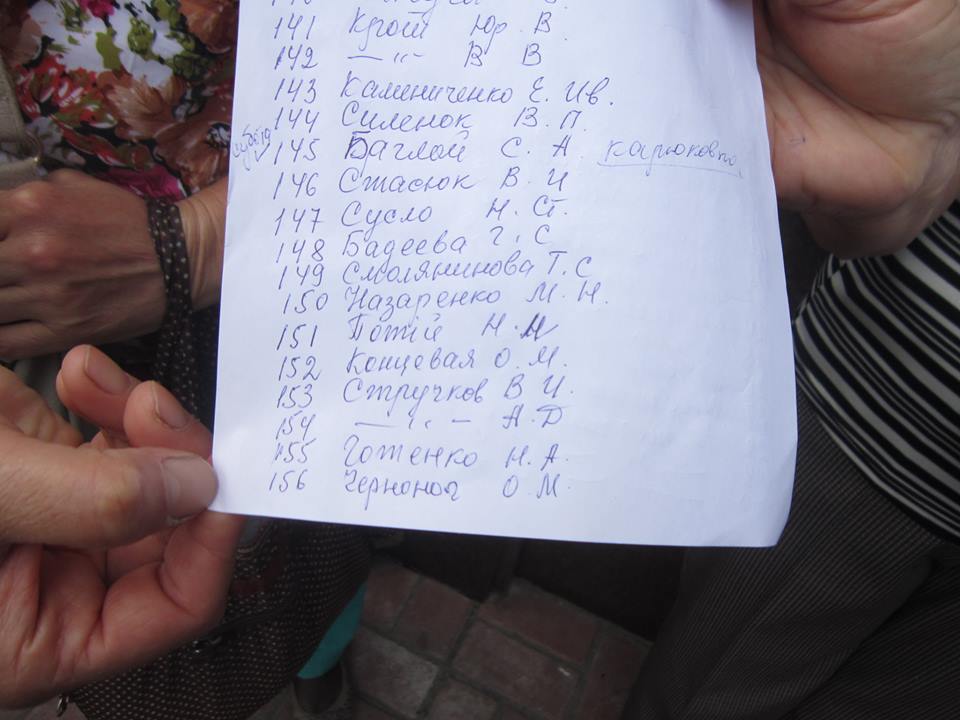 141 Кроит Юр. В.
142 — " — В В
143 Каменниченко Е. Ив.
144 Силенок В. П.
145 Баглой С. А.
146 Стасюк В. И
147 Сусло Н. Ст.
148 Бадеева Г. С
149 Смолянинова Т. С
150 Назаренко М. Н.
151 Потій Н. Н
152 Концевая О. М.
153 Стручков В И.
154 — " — А. Д
155 Гоженко Н. А.
156 Черноног О. М.